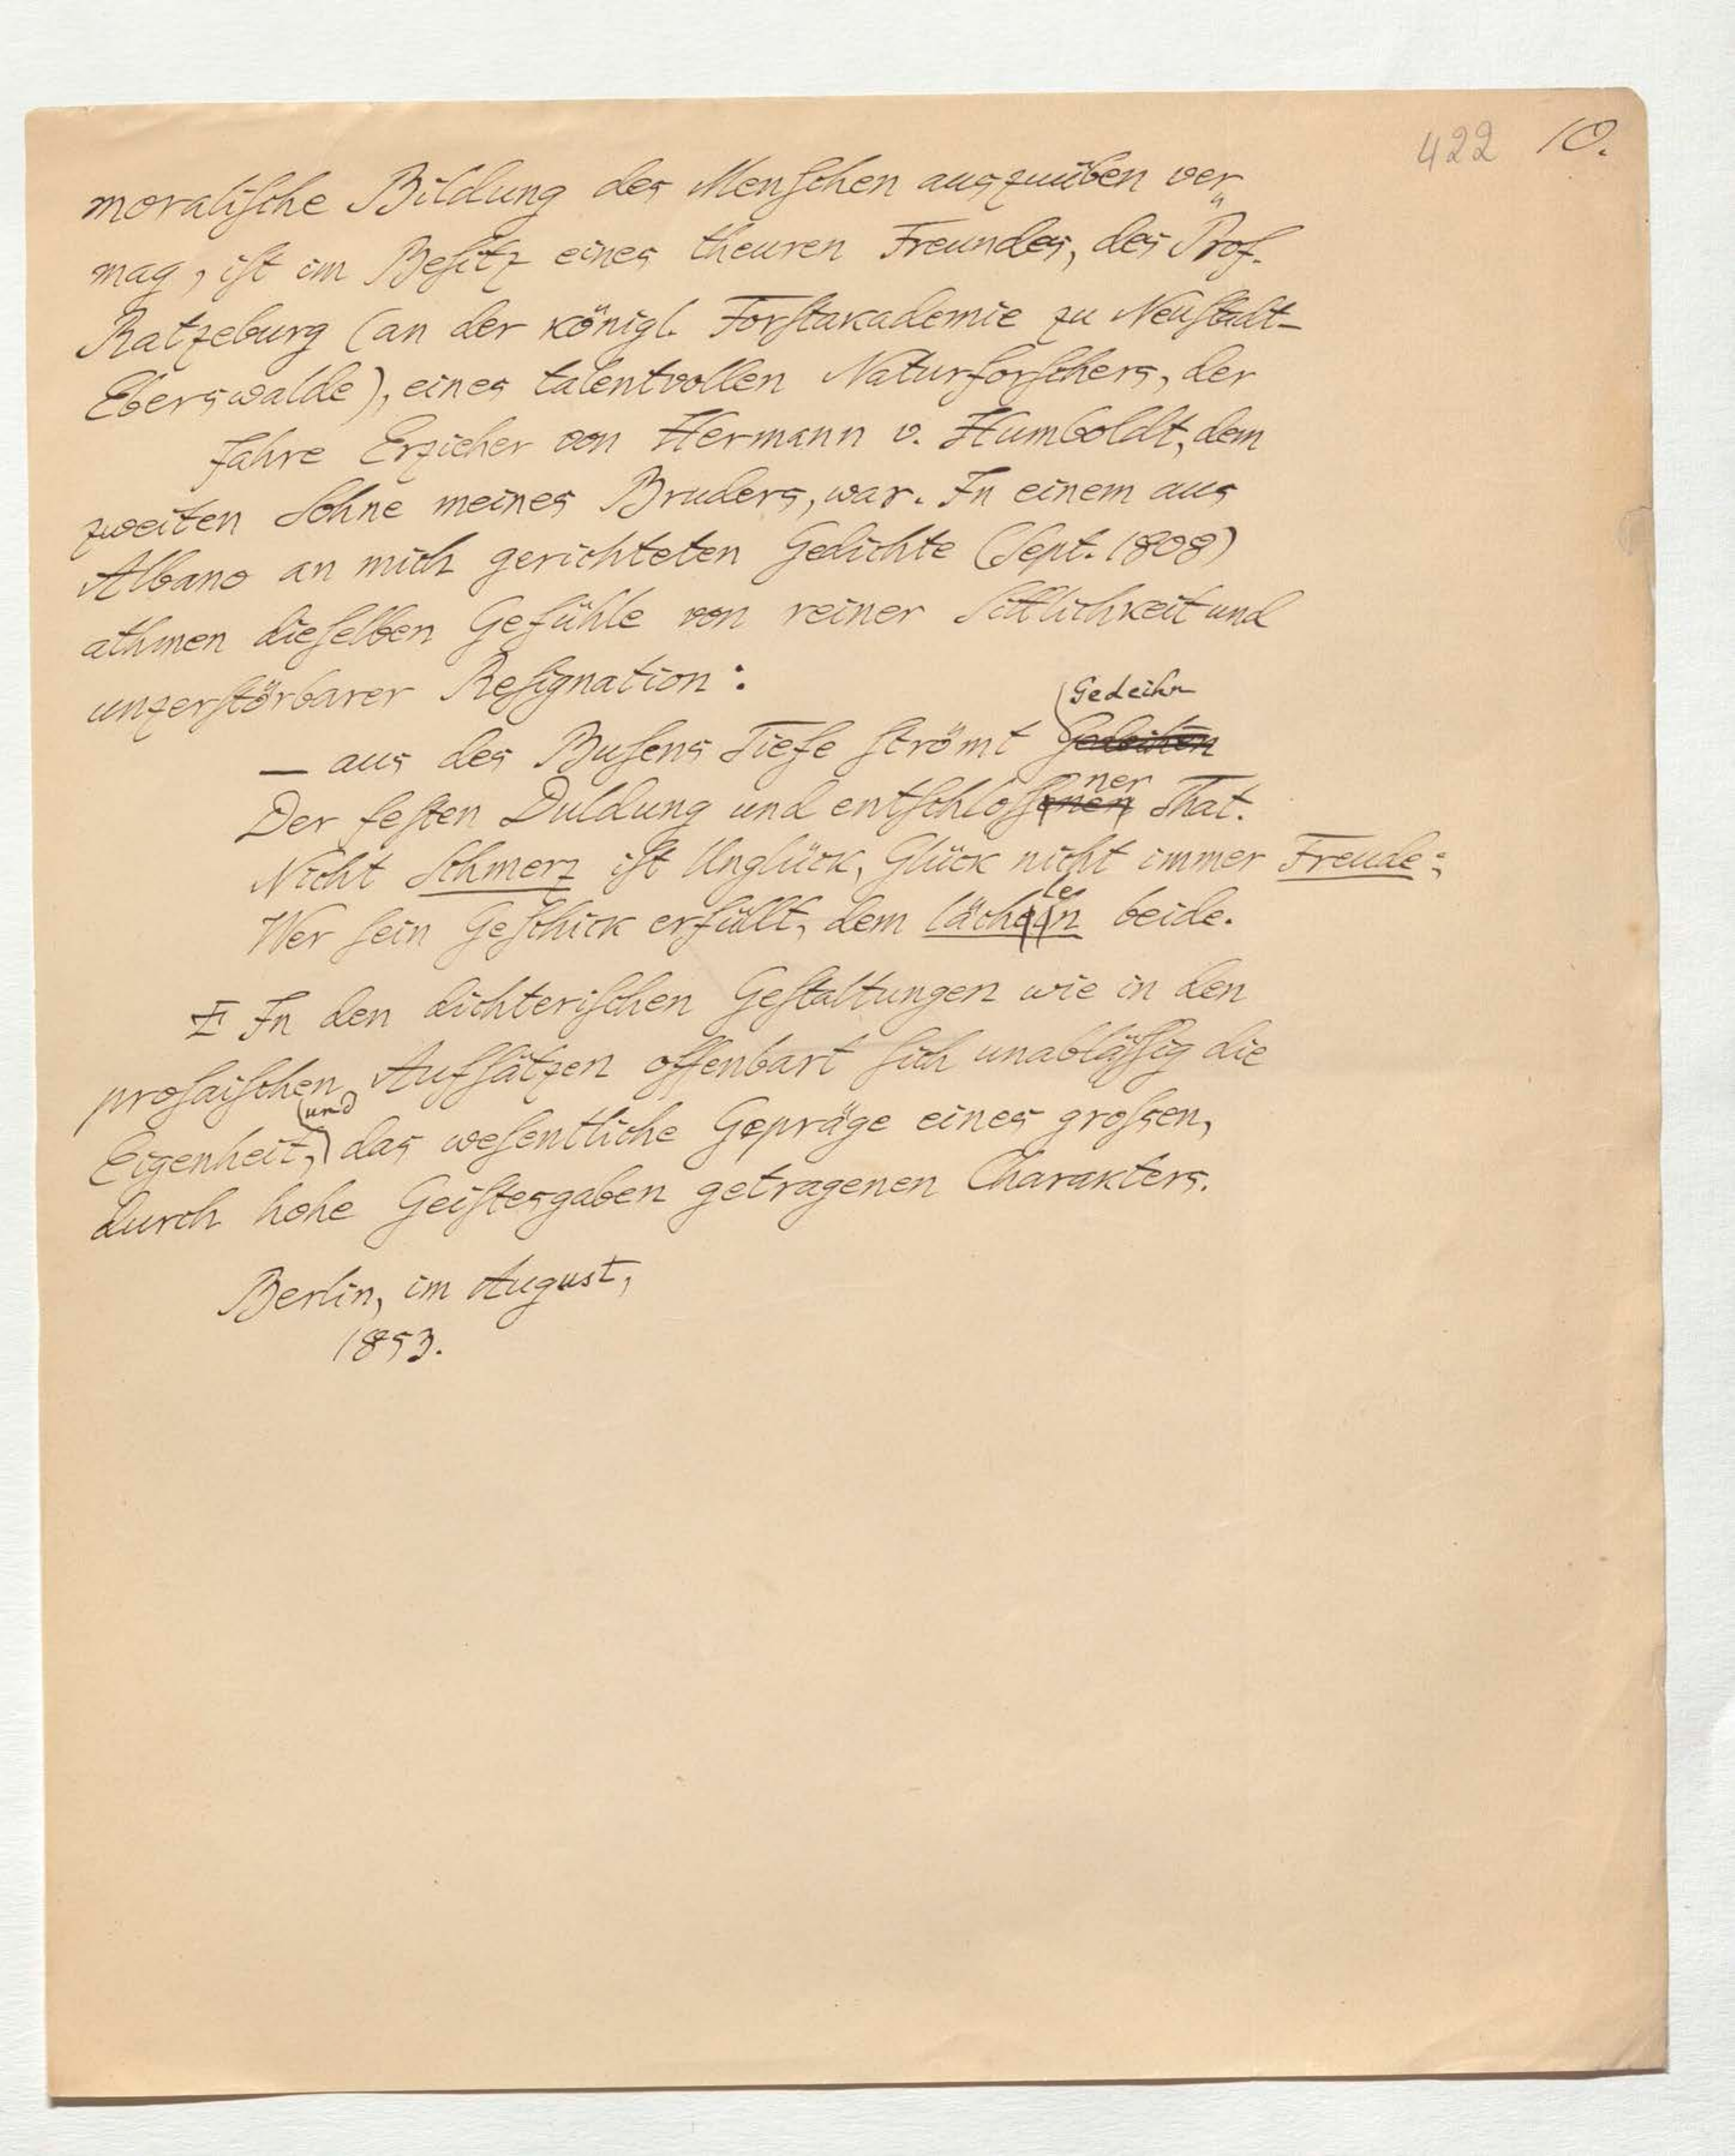 422 10.
moralische Bildung des Menschen auszuüben ver„
mag, ist im Besitz eines theuren Freundes, des Prof.
Ratzeburg (an der königl. Forstakademie zu Neustadt-
Eberswalde), eines talentvollen Naturforschers, der
Jahre Erzieher von Hermann v. Humboldt, dem
zweiten Sohne meines Bruders, war. In einem aus
Albano an mich gerichteten Gedichte (Sept. 1808)
athmen dieselben Gefühle von reiner Sittlichkeit und
unzerstörbarer Resignation:
Gedeihn
— aus des Busens Tiefe strömt Gedeihen
ner
Der festen Duldung und entschlossenen That.
Nicht Schmerz ist Unglück, Glück nicht immer Freude;
le
Wer sein Geschick erfüllt, dem lächeln beide.
I In den dichterischen Gestaltungen wie in den
prosaischen Aufsätzen offenbart sich unablässig die
und
Eigenheit, das wesentliche Gepräge eines grossen,
durch hohe Geistesgaben getragenen Charakters.
Berlin, im August,
1853.